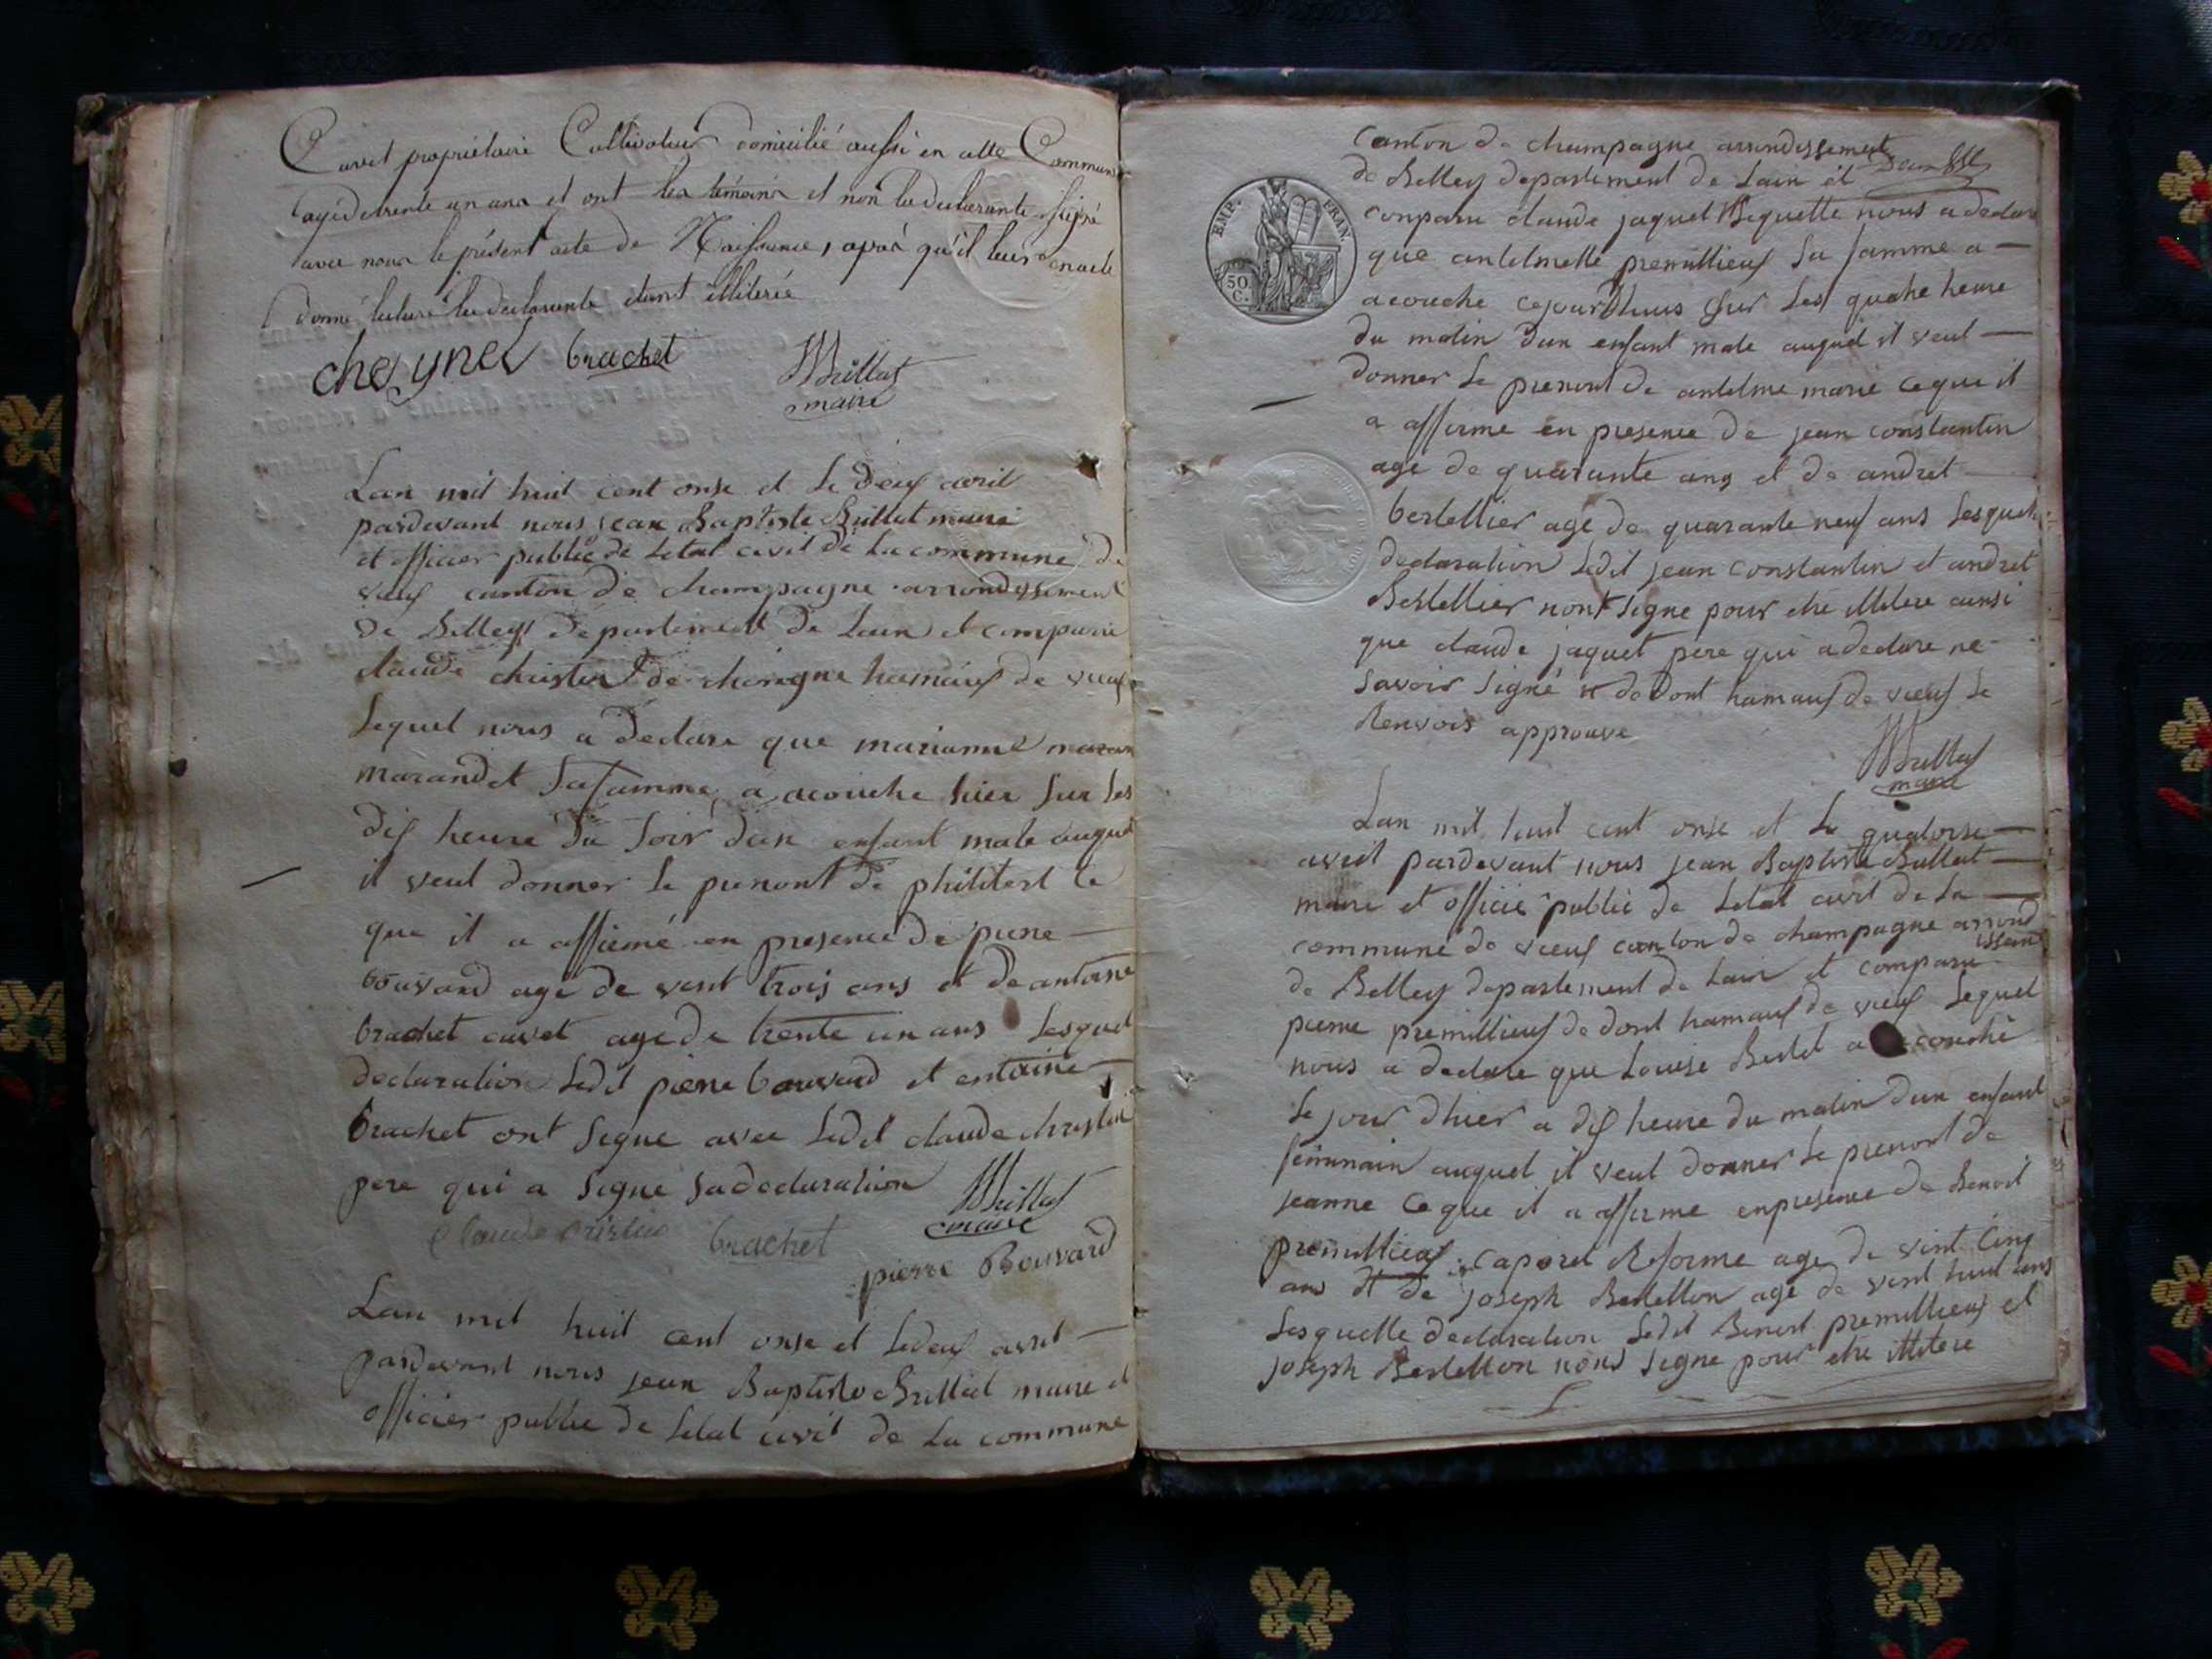 Cavet propriétaire Cultivateur domicilié aussi en cette Commune
agé de trente un ans et ont les témoins et non la déclarante signé
avec nous le présent acte de Naissance, après qu'il leur en a été
donné lecture la déclarante étant illiterée
cheynel brachet Brillat
maire
Lan mil huit cent onse et le deux avril
pardevant nous jean Baptiste Brillat maire
et officier public de letat civil de la commune de
vieuf canton de champagne arrondissement
de Belley departement de Lain et comparu
claude christin de charigne hamauf de vieuf
Lequel nous a declare que marianne
marandet sa famme a acouche hier sur les
dif heure du soir dun enfant male auquel
il veut donner le prenont de philitert ce
que il a affirmé en presence de pierre
bouvard age de vent trois ans et de antoine
brachet cavet age de trente un ans Lesquel
declaration Ledit pierre bouvard et entoine
brachet ont signe avec Ledit claude christin
pere qui a signe sa declaration
Brillat
maire
Claude Cristin brachet
pierre Bouvard
Lan mil huit cent onse et le deuf avril
pardevant nous jean Baptiste Brillat maire et
officier public de Letat civil de La commune
canton de champagne arrondissement
de Belley departement de Lain et
EMP. FRAN.
50. C.
conparu claude jaquet Biquette nous a declare
que antelmette premillieuf sa famme a
acouche cejourdhuis sur les quatre heure
du matin dun enfant male auquel il veut
donner le prenont de antelme marie ce que il
a affirme en presence de jean constantin
age de quarante ans et de andret
bertellier age de quarante neuf ans Lesquel
declaration Ledit jean constantin et andret
Bertellier nont signe pour etre illitere ainsi
que claude jaquet pere qui a declare ne
savoir signé de dont hamauf de vieuf Le
Renvois approuve
Brillat
maire
Lan mil huit cent onse et Le quatorse
avril pardevant nous jean Baptiste Brillat
maire et officie public de Letat civil de La
commune de vieuf canton de champagne arrond
issem
de Belley departement de Lain et comparu
pierre premillieuf de dont hamauf de vieuf Lequel
nous a declare que Louise Bertet a acouché
Le jour dhier a dif heure du matin dun enfant
feminain auquel il veut donner Le prenont de
jeanne ce que il a affirme enpresence de Benoit
premillieuf caporel Reforme age de vint cinq
ans et de joseph Bertellon age de vent huit ans
Lesquelle declaration Ledit Benoit premillieuf et
joseph Bertellon nont signe pour etre illitere